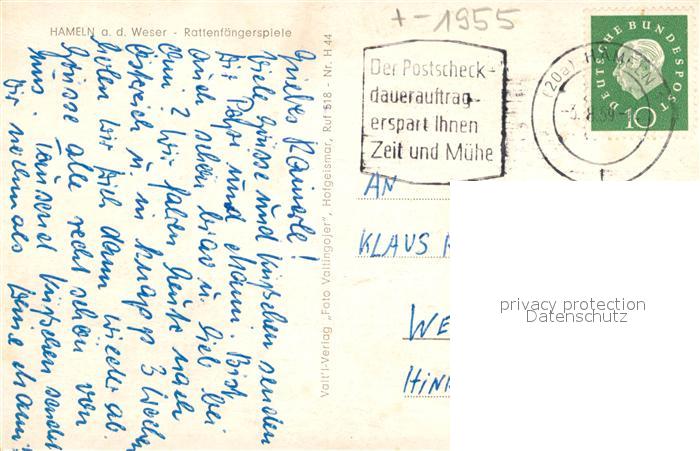 +-1955
HAMELN a. d. Weser - Rattenfängerspiele
DEUTSCHE BUNDESPOST
10
(20a) HAMELN
-3.8.59-1
Der Postscheck-
dauerauftrag
erspart Ihnen
Zeit und Mühe
Valt'l-Verlag „Foto Valtingojer", Hofgeismar, Ruf 518 - Nr. H 44
AN
KLAUS
WE
HIN
privacy protection
Datenschutz
Liebes
Viele Grüsse und Küsschen senden
Dir Papi und Mami. Bist
auch schön brav u. lieb bei
Omi? Wir fahren heute nach
Österreich u. in knapp 3 Wochen
holen wir Dich dann wieder ab.
Grüsse alle recht schön von
uns. Tausend Küsschen sendet
Dir nochmals Deine Mami